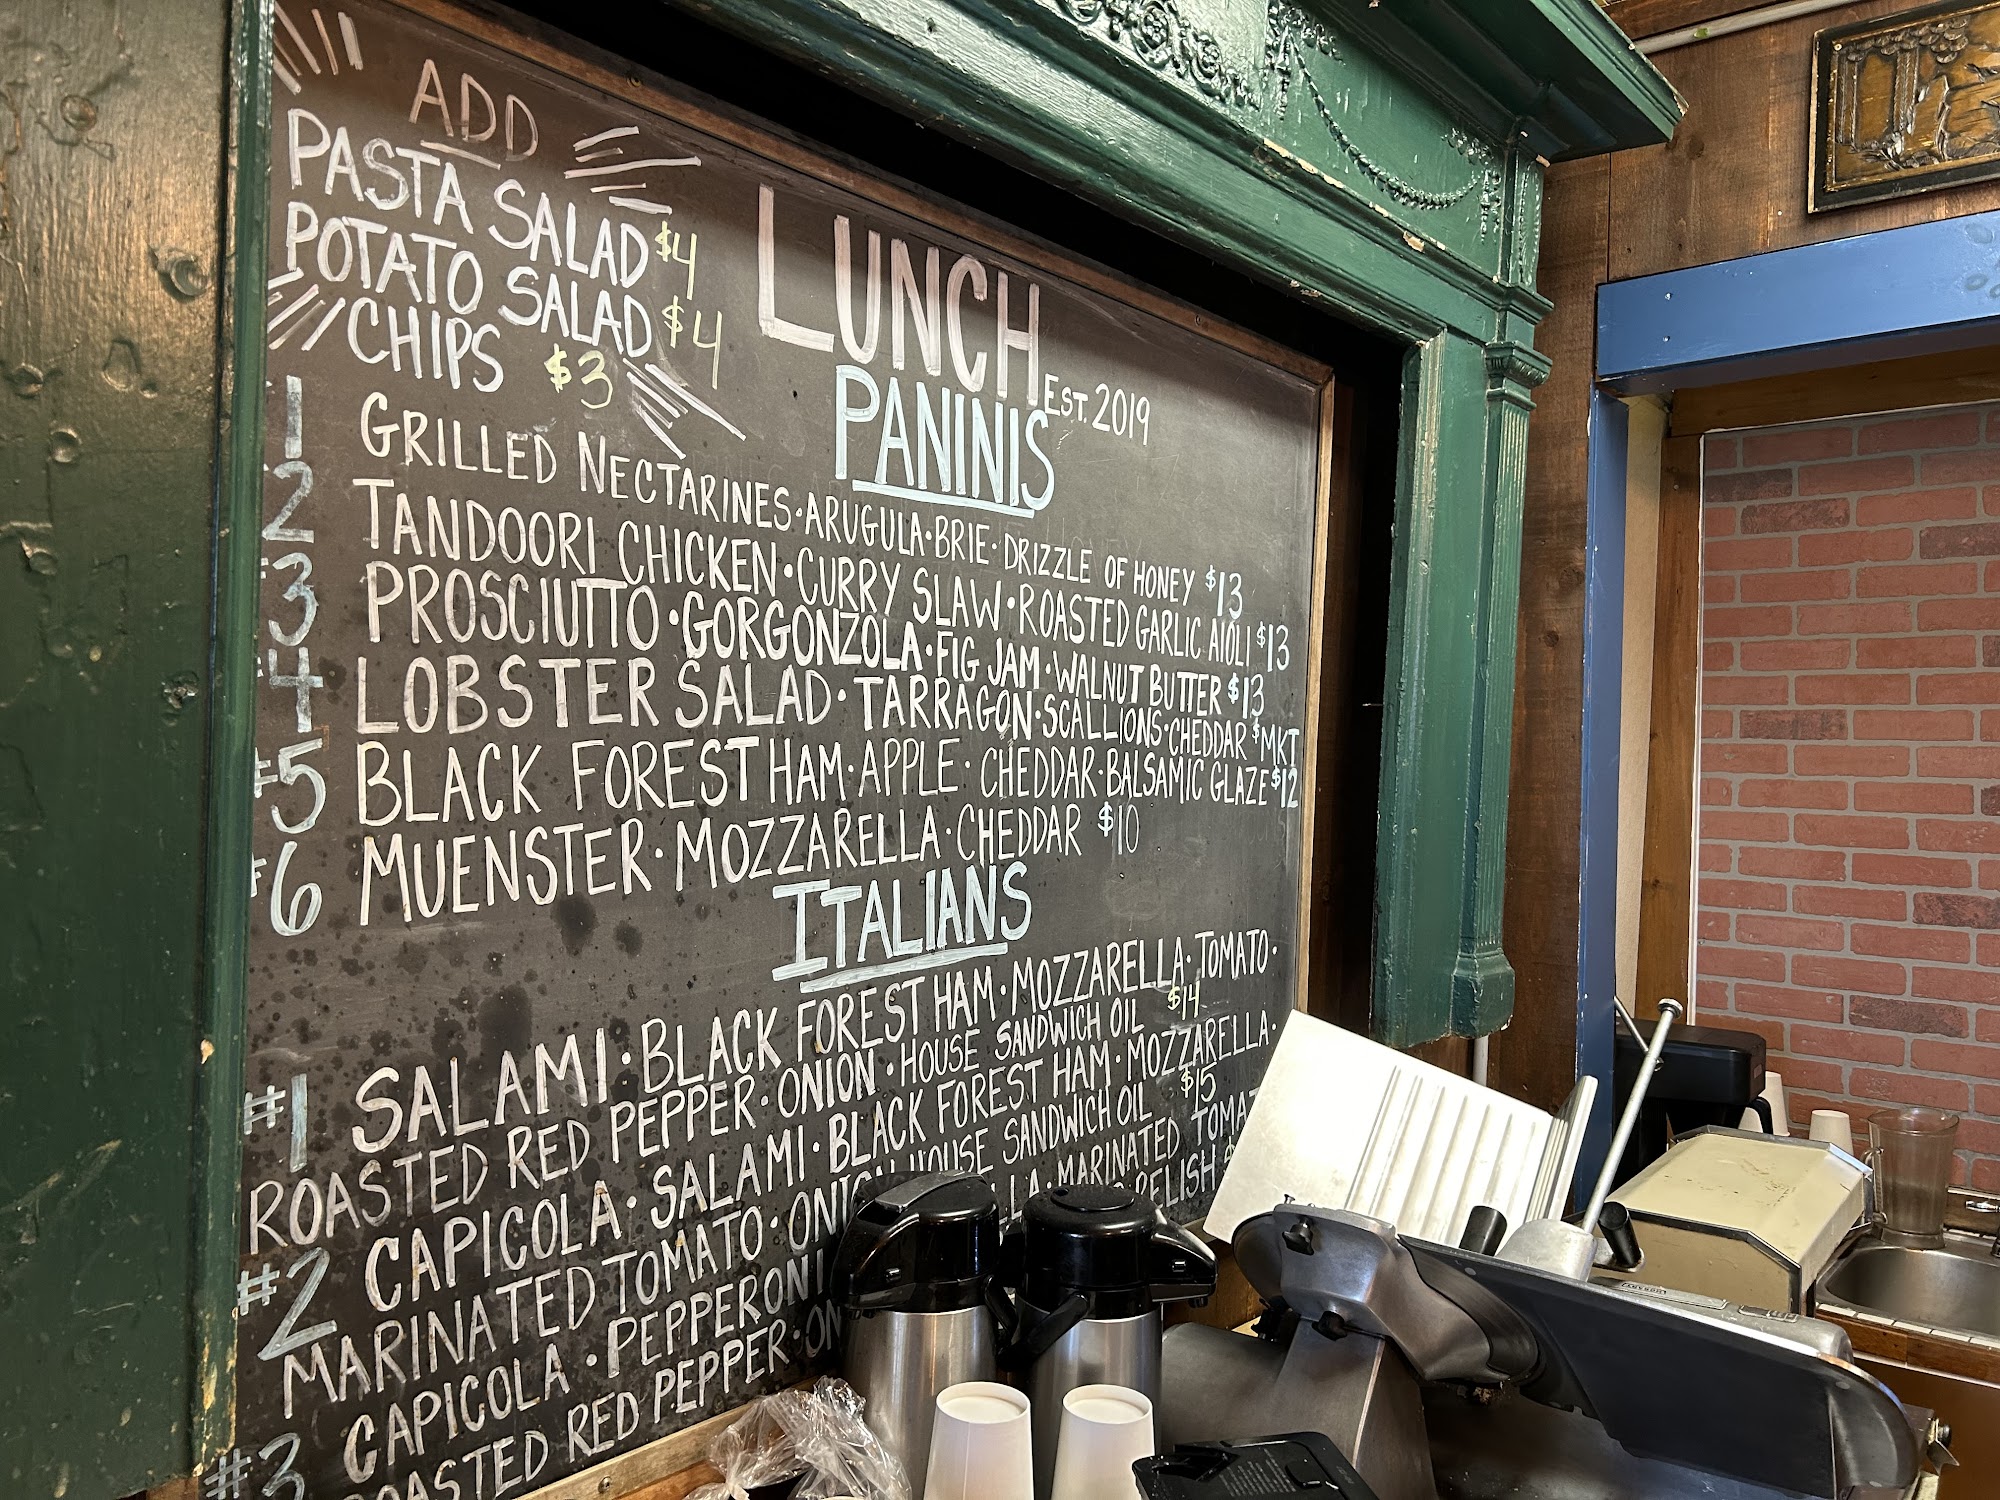 ADD
PASTA SALAD $4
POTATO SALAD $4
CHIPS $3
LUNCH
EST. 2019
PANINIS
#1 GRILLED NECTARINES · ARUGULA · BRIE · DRIZZLE OF HONEY $13
#2 TANDOORI CHICKEN · CURRY SLAW · ROASTED GARLIC AIOLI $13
#3 PROSCIUTTO · GORGONZOLA · FIG JAM · WALNUT BUTTER $13
#4 LOBSTER SALAD · TARRAGON · SCALLIONS · CHEDDAR $MKT
#5 BLACK FOREST HAM · APPLE · CHEDDAR · BALSAMIC GLAZE $12
#6 MUENSTER · MOZZARELLA · CHEDDAR $10
ITALIANS
#1 SALAMI · BLACK FOREST HAM · MOZZARELLA · TOMATO ·
ROASTED RED PEPPER · ONION · HOUSE SANDWICH OIL $14
#2 CAPICOLA · SALAMI · BLACK FOREST HAM · MOZZARELLA ·
MARINATED TOMATO · ONION HOUSE SANDWICH OIL $15
#3 CAPICOLA · PEPPERONI MARINATED
ROASTED RED PEPPER · RELISH